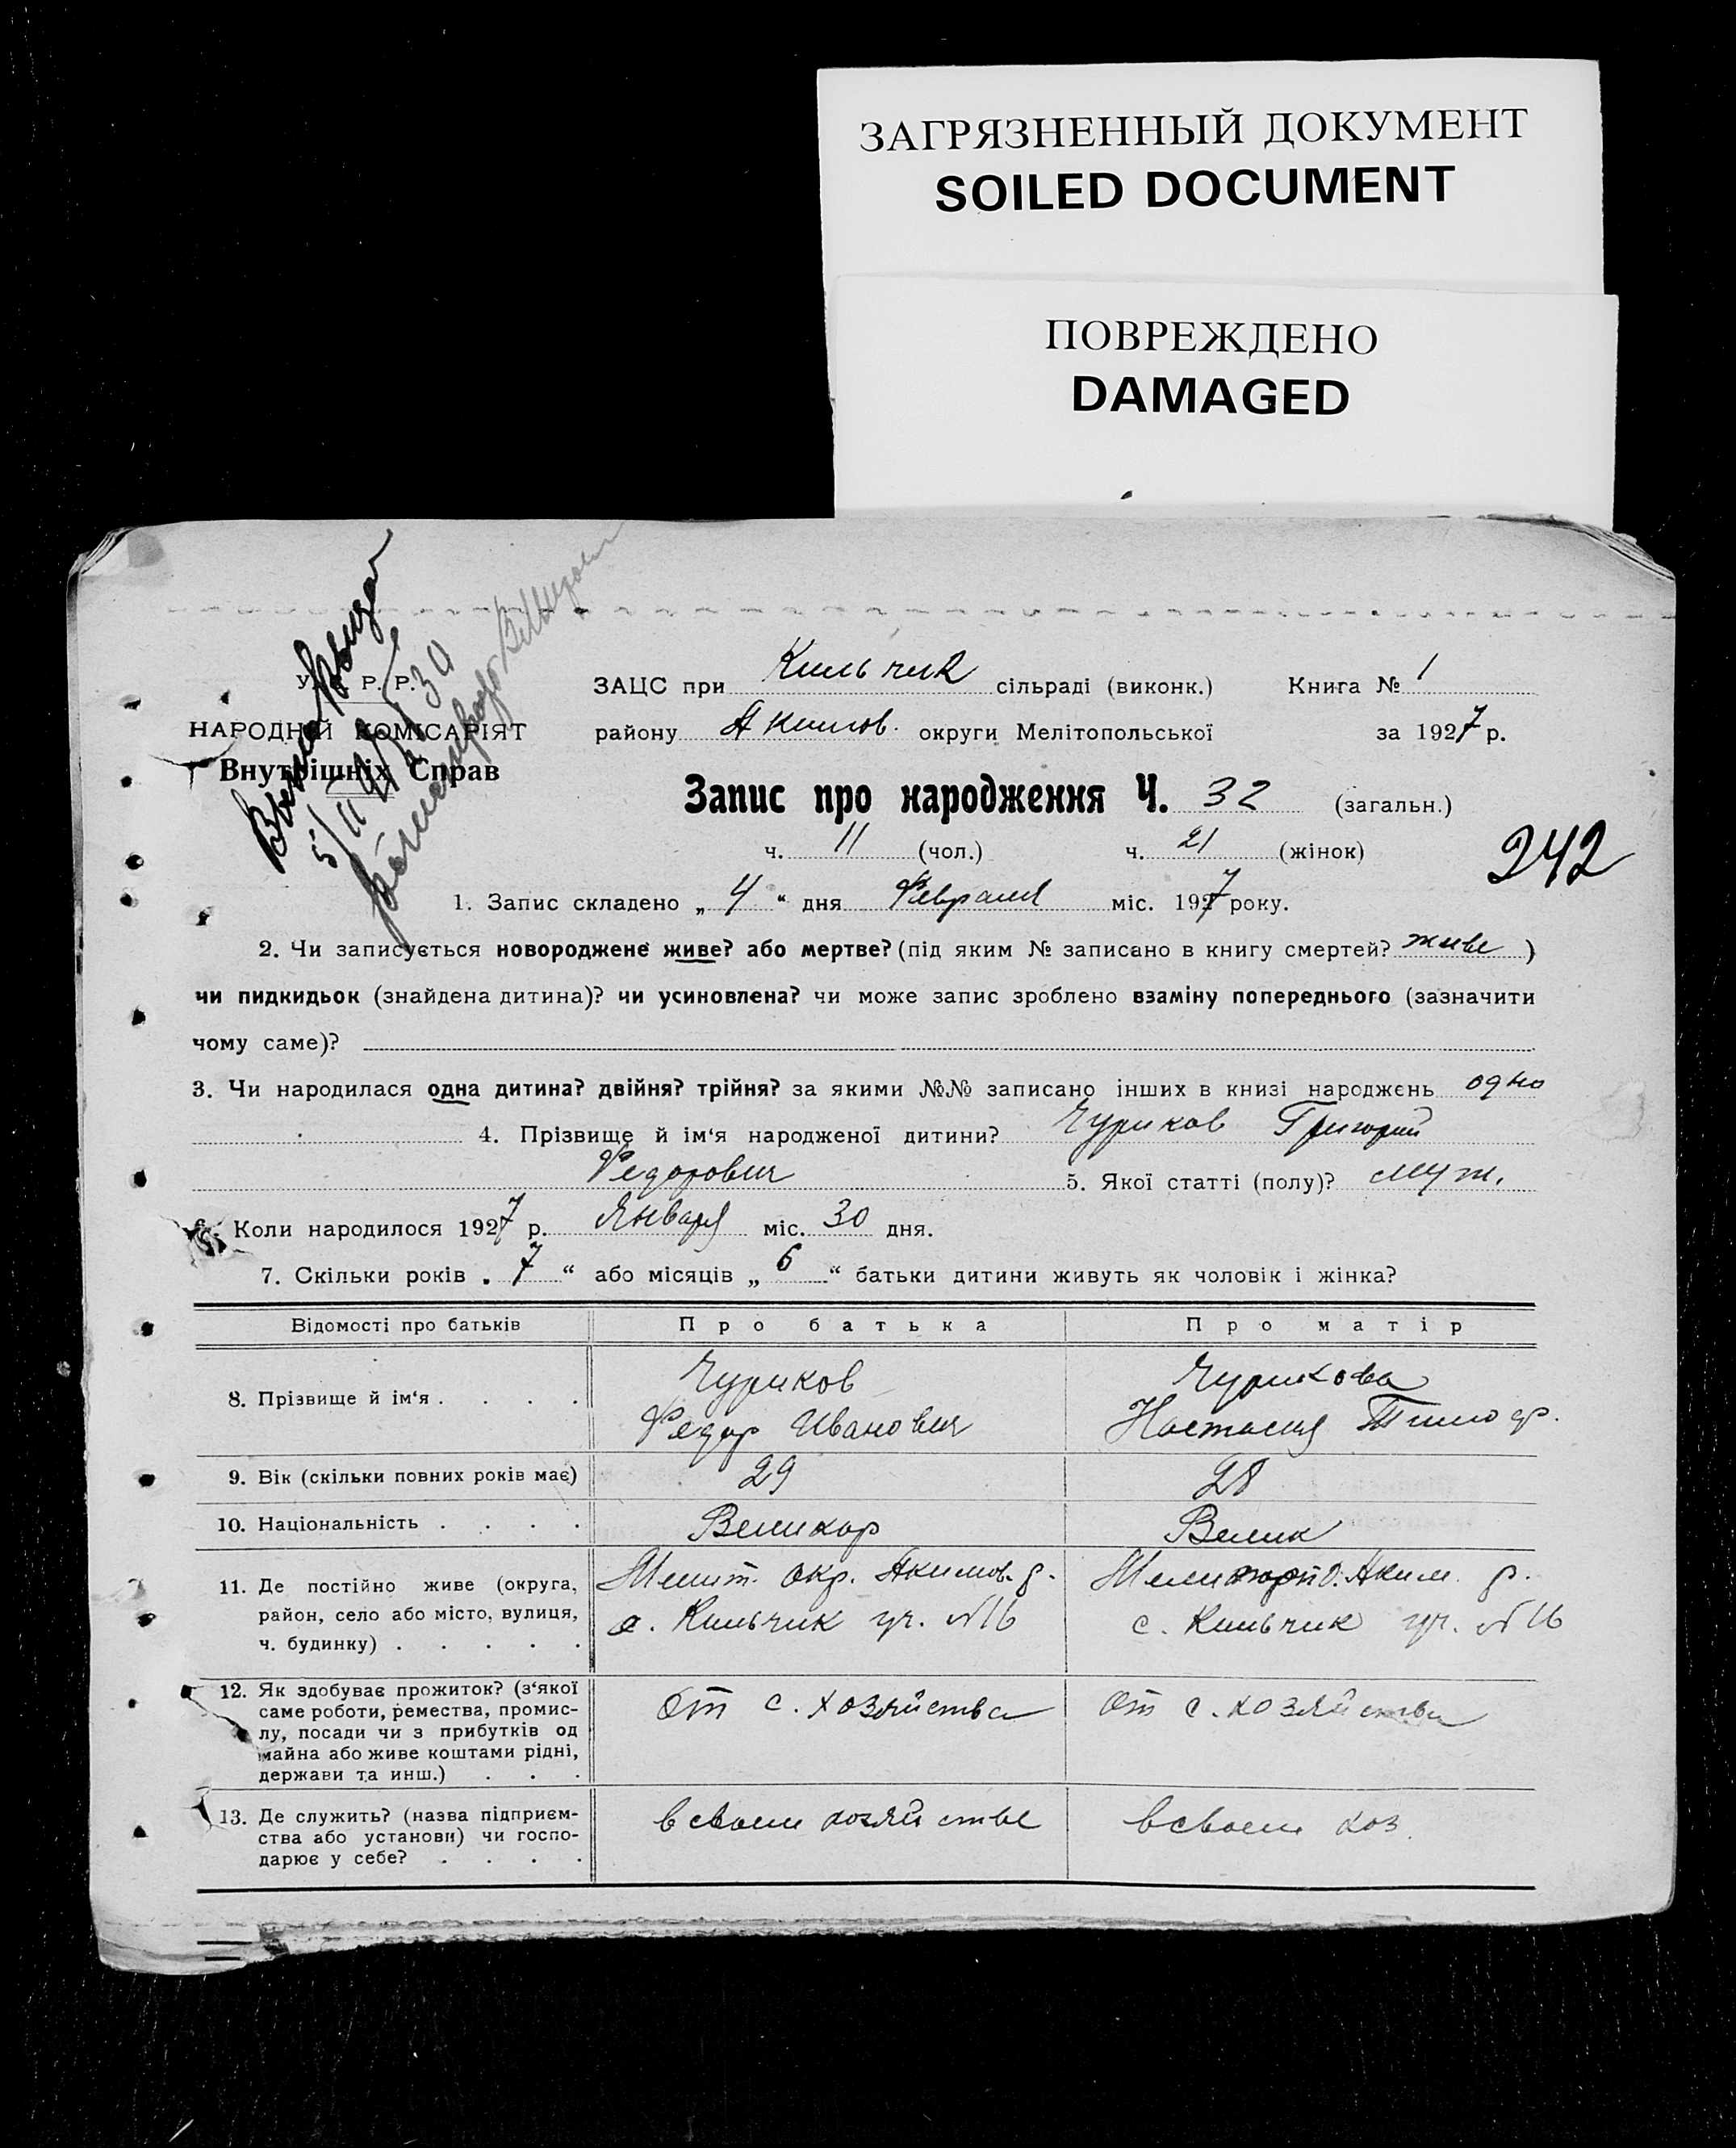 ЗАГРЯЗНЕННЫЙ ДОКУМЕНТ
SOILED DOCUMENT
ПОВРЕЖДЕНО
DAMAGED
У. Р. Р.
НАРОДНІЙ КОМІСАРІЯТ
Внутрішніх Справ
ЗАЦС при Кильчик сільраді (виконк.) Книга № 1
району Акимов. округи Мелітопольської за 1927 р.
Запис про народження Ч. 32 (загальн.)
ч. 11 (чол.) ч. 21 (жінок)
242
1. Запис складено „ 4 “ дня Февраля міс. 1927 року.
2. Чи записується новороджене живе? або мертве? (під яким № записано в книгу смертей? живе )
чи пидкидьок (знайдена дитина)? чи усиновлена? чи може запис зроблено взаміну попереднього (зазначити
чому саме)?
3. Чи народилася одна дитина? двійня? трійня? за якими №№ записано інших в книзі народжень одно
4. Прізвище й ім‘я народженої дитини? Чуриков Григорий
Федорович 5. Якої статті (полу)? муж.
6. Коли народилося 1927 р. Января міс. 30 дня.
7. Скільки років „ 7 “ або місяців „ 6 “ батьки дитини живуть як чоловік і жінка?
Відомості про батьків Про батька Про матір
8. Прізвище й ім‘я . . . . Чуриков Чурикова
Федор Иванович Настасия Тимоф.
9. Вік (скільки повних років має) 29 28
10. Національність . . . . Великор Велик
11. Де постійно живе (округа, Мелит. окр. Акимов. р. Аким. р.
район, село або місто, вулиця, с. Кильчик уч. №16 с. Кильчик уч. №16
ч. будинку) . . . . .
12. Як здобуває прожиток? (з‘якої
саме роботи, ремества, промис- От с. хозяйства От с. хозяйства
лу, посади чи з прибутків од
майна або живе коштами рідні,
держави та инш.) . . .
13. Де служить? (назва підприєм- в своем хозяйстве в своем хоз.
ства або установи) чи госпо-
дарює у себе? . . . .